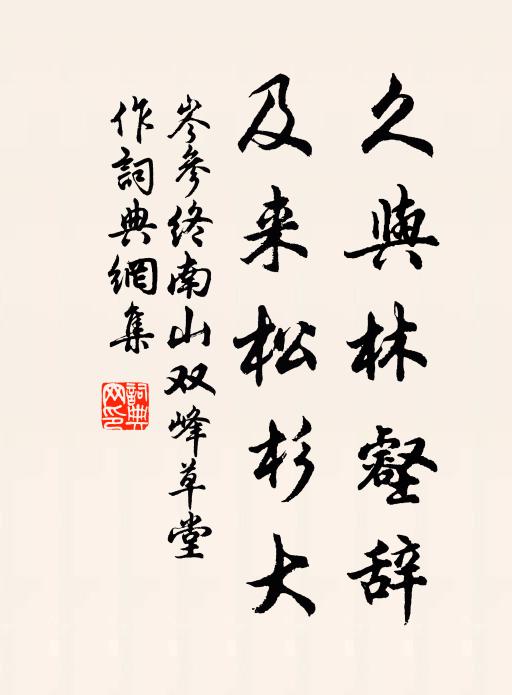 久與林壑辞
及来松杉大
岑參终南山双峰草堂
作詞典網集
詞典网印